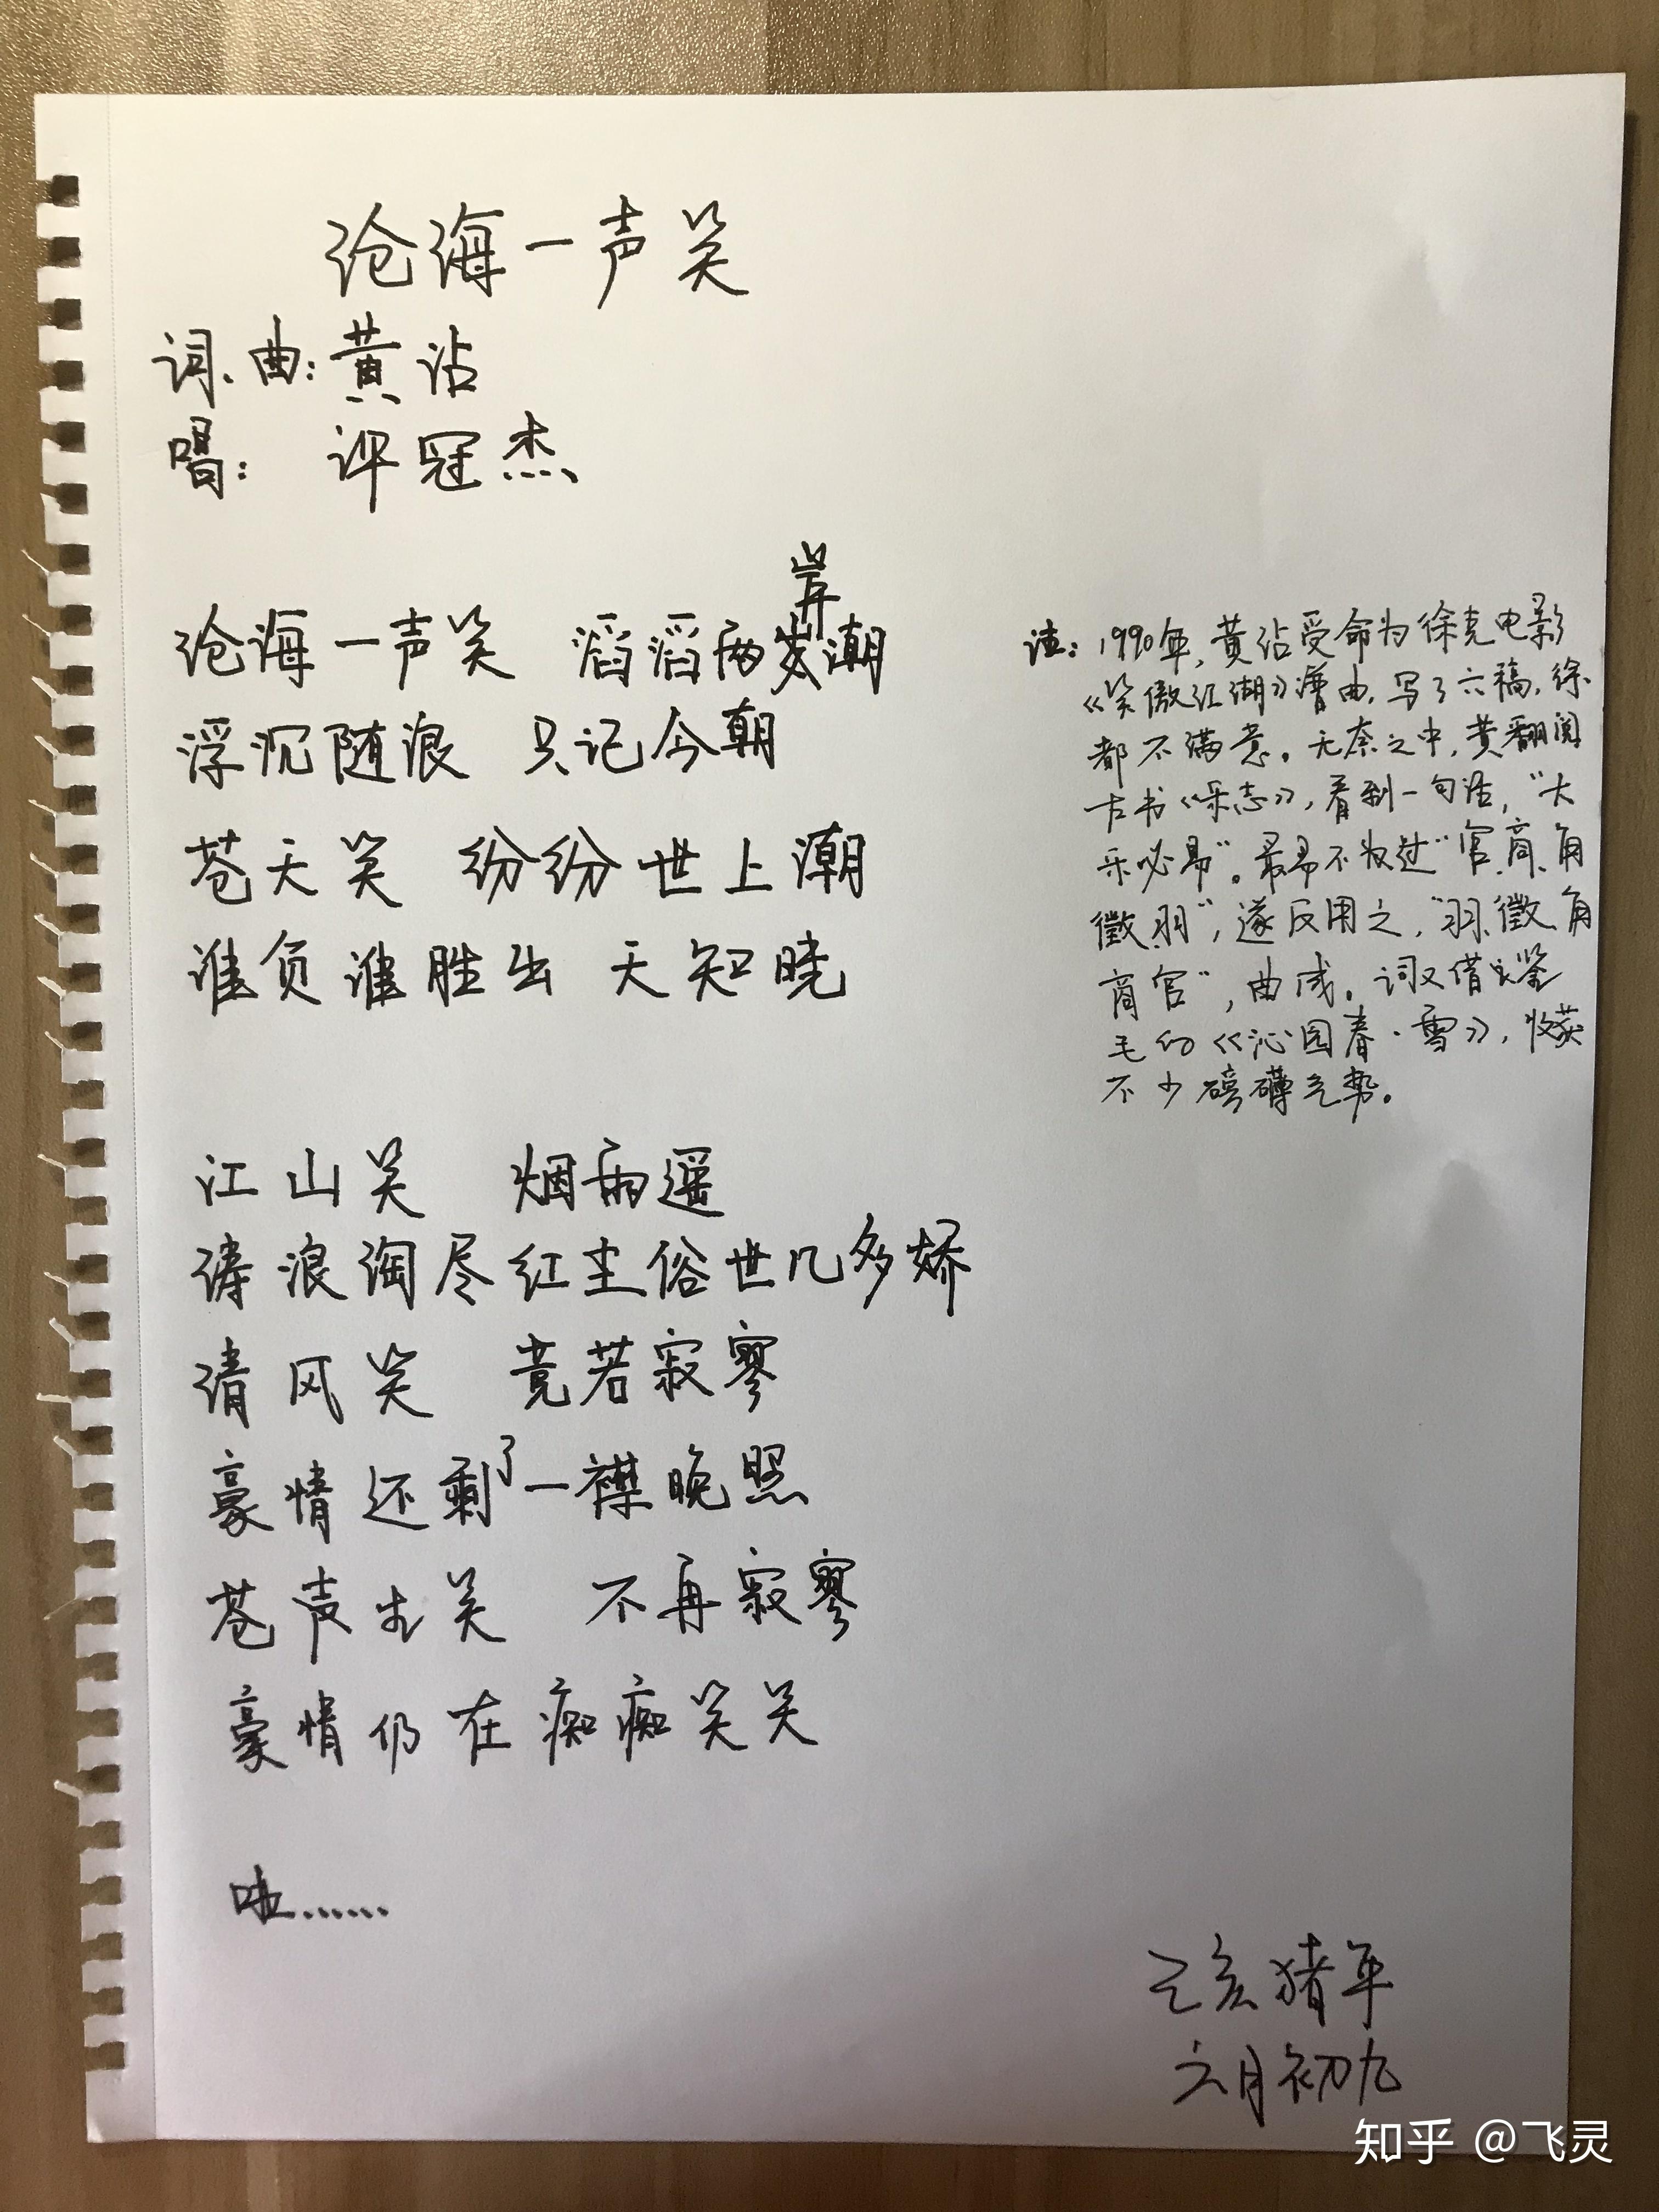 沧海一声笑
词、曲：黄沾
唱：许冠杰
沧海一声笑 滔滔两岸潮
浮沉随浪 只记今朝
苍天笑 纷纷世上潮
谁负谁胜出 天知晓
江山笑 烟雨遥
涛浪淘尽红尘俗世几多娇
清风笑 竟若寂寥
豪情还剩了一襟晚照
苍声生笑 不再寂寥
豪情仍在痴痴笑笑
啦……
注：1990年，黄沾受命为徐克电影
《笑傲江湖》谱曲，写了六稿，徐
都不满意。无奈之中，黄翻阅
古书《乐志》，看到一句话，“大
乐必易”。最易不过“宫、商、角
徵、羽”，遂反用之，“羽、徵、角
商宫”，曲成。词又借鉴
毛的《沁园春·雪》，收获
不少磅礴气势。
己亥猪年
六月初九
知乎 @飞灵